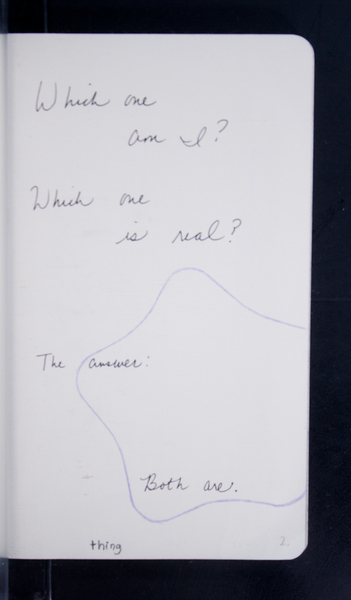 Which one
am I?
Which one
is real?
The answer:
Both are.
thing
2.